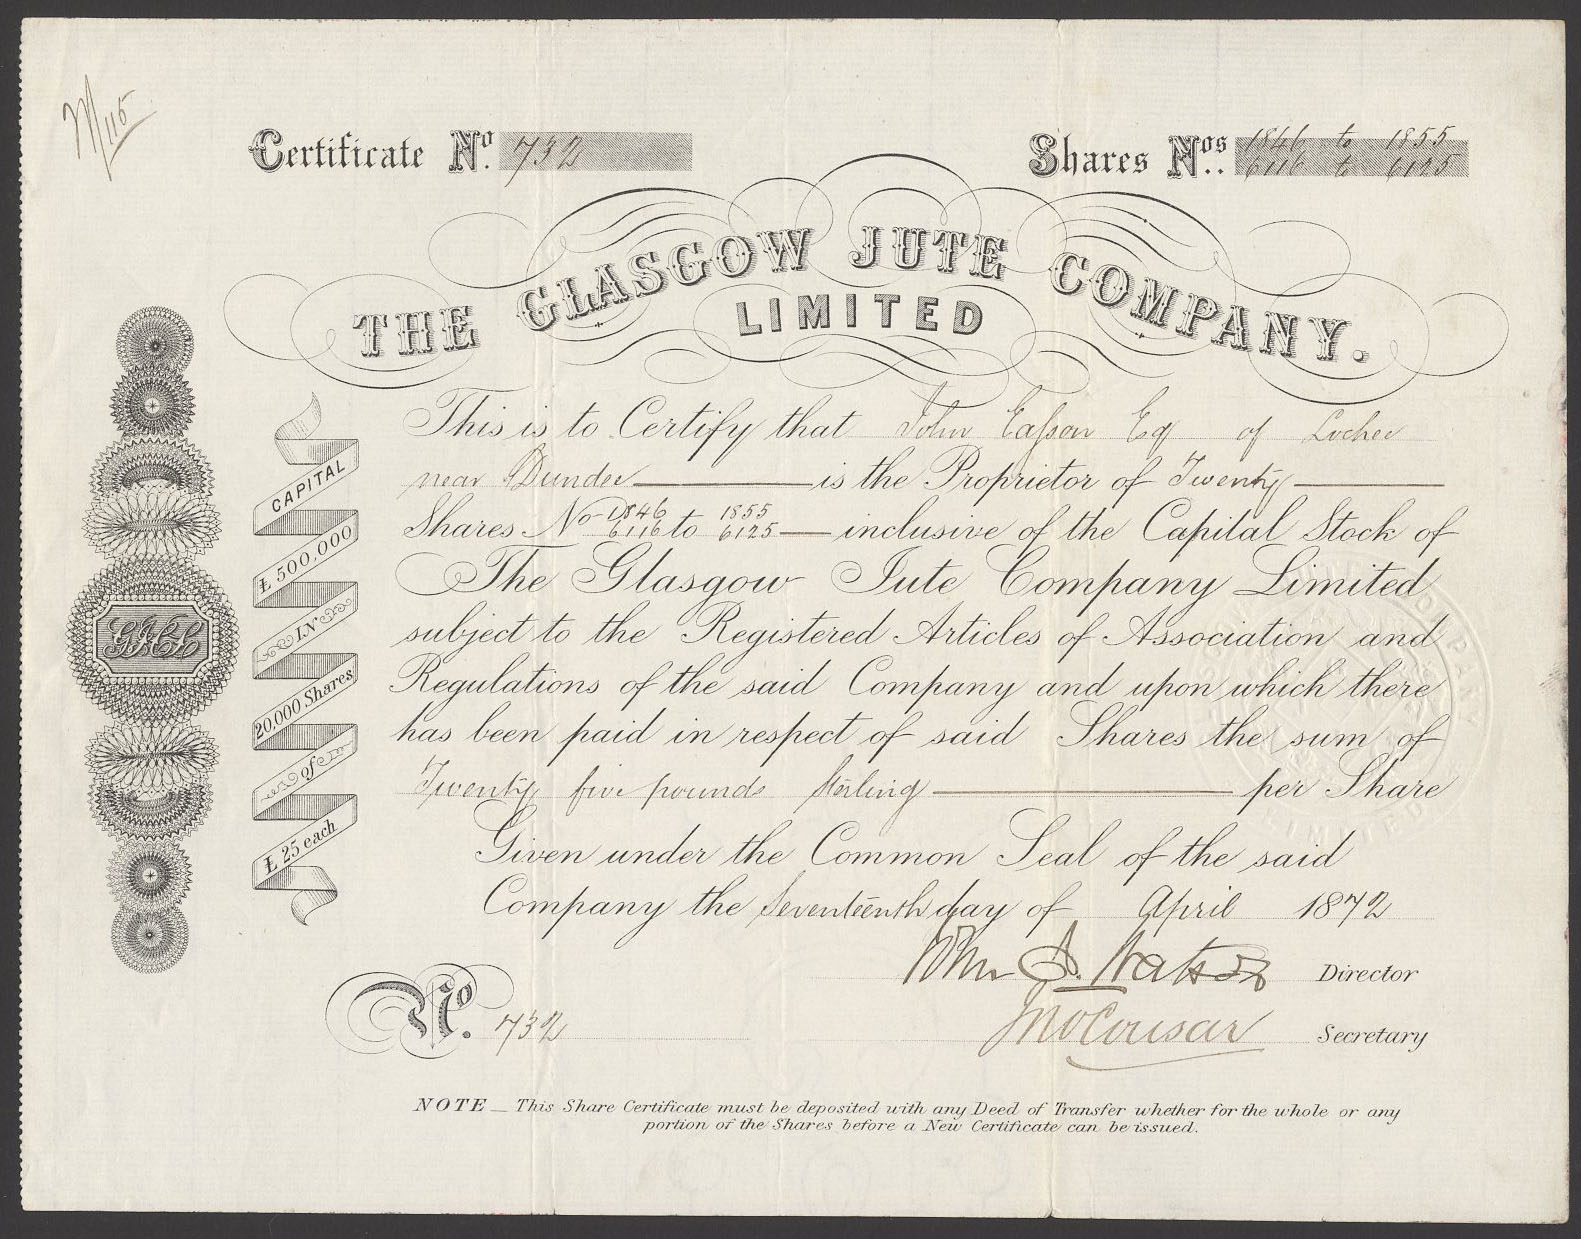 M/115
Certificate No. 732
Shares Nos. 1846 to 1855
6116 to 6125
THE GLASGOW JUTE COMPANY.
LIMITED
CAPITAL
£500,000
IN
20,000 Shares
of
£25 each
GJCL
This is to Certify that John Easson Eq of Lochee
near Dundee is the Proprietor of Twenty
Shares No 1846 to 1855
6116 6125 inclusive of the Capital Stock of
The Glasgow Jute Company Limited
subject to the Registered Articles of Association and
Regulations of the said Company and upon which there
has been paid in respect of said Shares the sum of
Twenty five pounds Sterling per Share
Given under the Common Seal of the said
Company the Seventeenth day of April 1872
John S. Watson Director
No. 732
Secretary
NOTE _ This Share Certificate must be deposited with any Deed of Transfer whether for the whole or any
portion of the Shares before a New Certificate can be issued.